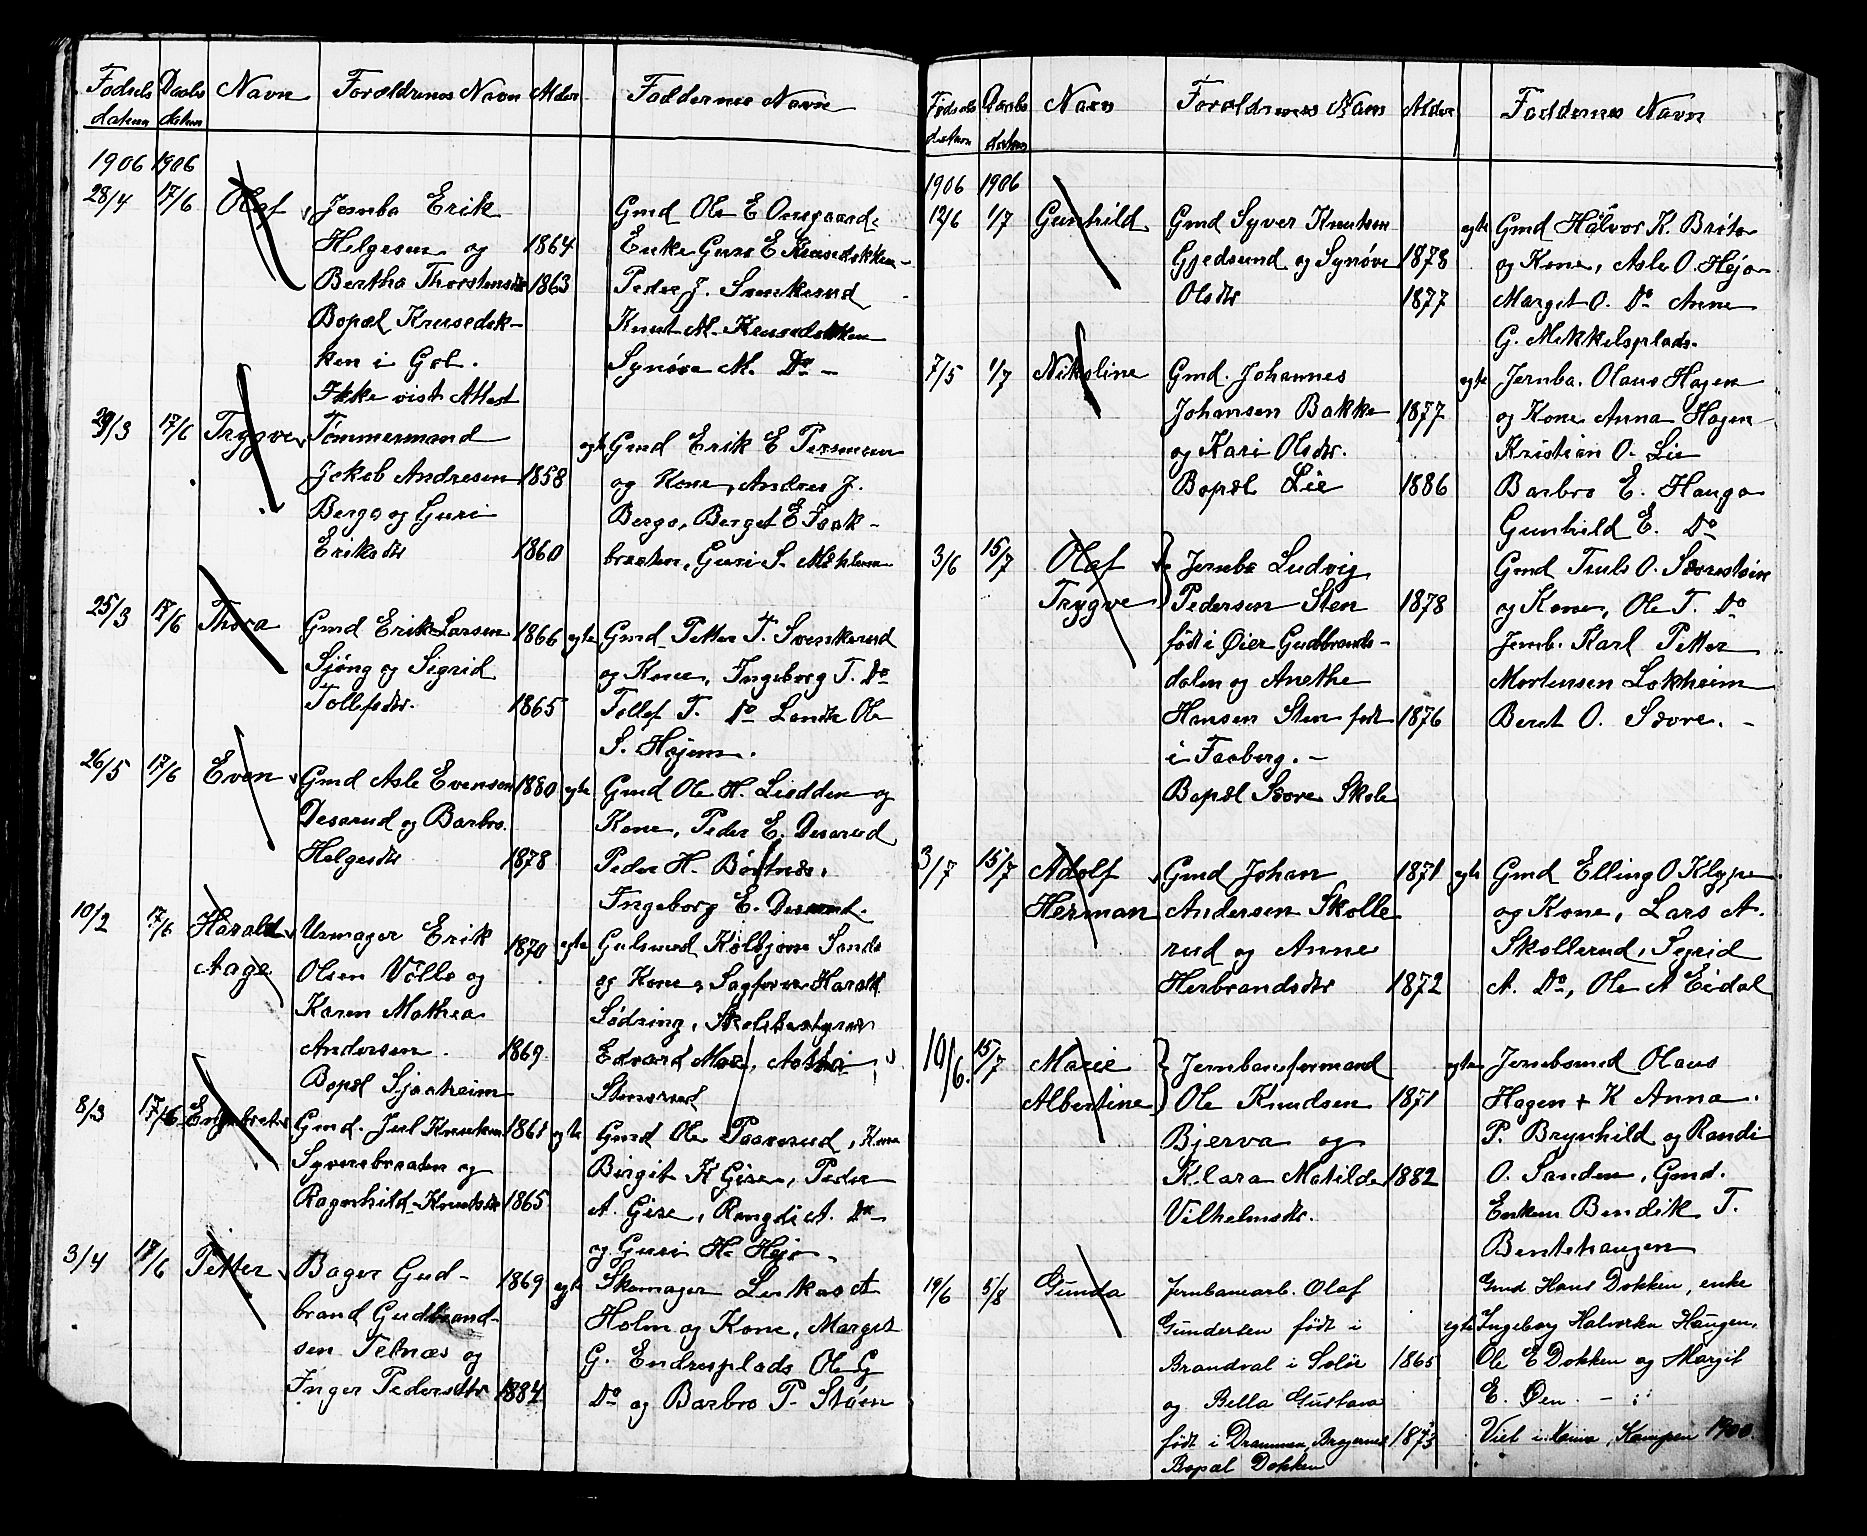 Fødsels Daabs Navn Forældrenes Navn Alder Faddernes Navn
datum datum
1906 1906
28/4 17/6 Olaf Jernba Erik Gmd Ole E
Helgesen og 1864 Enke Guro E Krusedokken
Bertha Thorstensdtr 1863 Peder J. Svenkerud
Bopæl Krusedok- Knut M. Krusedokken
ken i Gol. Synøve M. Do -
Ikke vist Attest
29/3 17/6 Trygve Tømmermand egte Gmd Erik E Persmoen
Jakob Andresen 1858 og Kone, Andres J.
Bergo og Guri Bergo, Berget E Fæk-
Eriksdtr 1860 braaten, Guri S.
25/3 17/6 Thora Gmd Erik Larsen 1866 egte Gmd Petter T. Svenkerud
Sjong og Sigrid og Kone, Ingeborg T. Do
Tollefsdtr. 1865 Tollef T. Do Ole
S. Hojem.
26/5 17/6 Even Gmd Asle Evensen 1880 egte Gmd Ole H. Liodden og
Desarud og Barbro Kone, Peder E. Desarud
Helgesdtr 1878 Peder H. Børtnæs,
Ingeborg E. Desarud.
10/2 17/6 Harald Urmager Erik 1870 egte Gulsmed Kolbjørn Sando
Aage Olsen Vøllo og og Kone, Sagfører Harald
Karen Mathea Sødring, Skolebestyrer
Andersen. 1869 Edvard Moe,
Bopæl Sjaaheim
8/3 17/6 Engebret Gmd. Jul Knutsen 1861 egte Gmd Ole Kone
Syversbraaten og Birgit K Gise, Peder
Ragnhild Knutsdtr 1865 A. Gise, Rangdi A. Do
og Guri H. Hejo.
3/4 17/6 Petter Bager Gud- 1869 egte Skomager Lukas A
brand Gudbrand- Holm og Kone, Marget
sen Tetnæs og G. Endresplads Ole G
Inger Pedersdtr 1884 Do og Barbro P. Støen
Fødsels Daabs Navn Forældrenes Navn Alder Faddernes Navn
datum datum
1906 1906
12/6 1/7 Gunhild Gmd Syver Knutsen egte Gmd Halvor K. Brøto
Gjedsund og Synøve 1878 og Kone, Asle O. Hejo
Olsdtr 1877 Marget O. Do Anne
G. Mikkelsplads.
7/5 1/7 Nikoline Gmd. Johannes egte Jernba. Olaus Hagen
Johansen Bakke 1877 og Kone Anna Hagen
og Kari Olsdtr. Kristian O. Lie
Bopæl Lie 1886 Barbro E. Haugo
Gunhild E. Do
3/6 15/7 Olaf Jernba Ludvig Gmd Truls O. Sevrestøin
Trygve Pedersen Sten 1878 og Kone, Ole T. Do
født i Øier Gudbrands- Jernb. Karl Petter
dalen og Anethe Mortensen Lokheim
Hansen Sten født 1876 Berit O. Sævre. -
i Faaberg. -
Bopæl Sævre Skole
3/7 15/7 Adolf Gmd Johan 1871 egte Gmd Elling O Klype
Herman Andersen Skolle og Kone, Lars A.
rud og Anne Skollerud, Sigrid
Herbrandsdtr 1872 A. Do, Ole A Eidal
10/6. 15/7 Marie Jernbaneformand egte Jernbamd Olaus
Albertine Ole Knudsen 1871 Hagen + K Anna.
Bjerva og P. Brynhild og Randi
Klara Matilde 1882 O. Sanden, Gmd.
Vilhelmsdtr. Enkem Bendik T.
Bentehaugen
19/6 5/8 Gunda Jernbanearb. Olaf Gmd Hans Dokken, enke
Gundersen født i egte Ingeborg Halvorka Haugen.
Brandval i Solør 1865 Ole E Dokken og Margit
og Bella Gustava E. Øen. -
født i Drammen, Bragernes 1873 Viet i Kampen 1900.
Bopæl Dokken